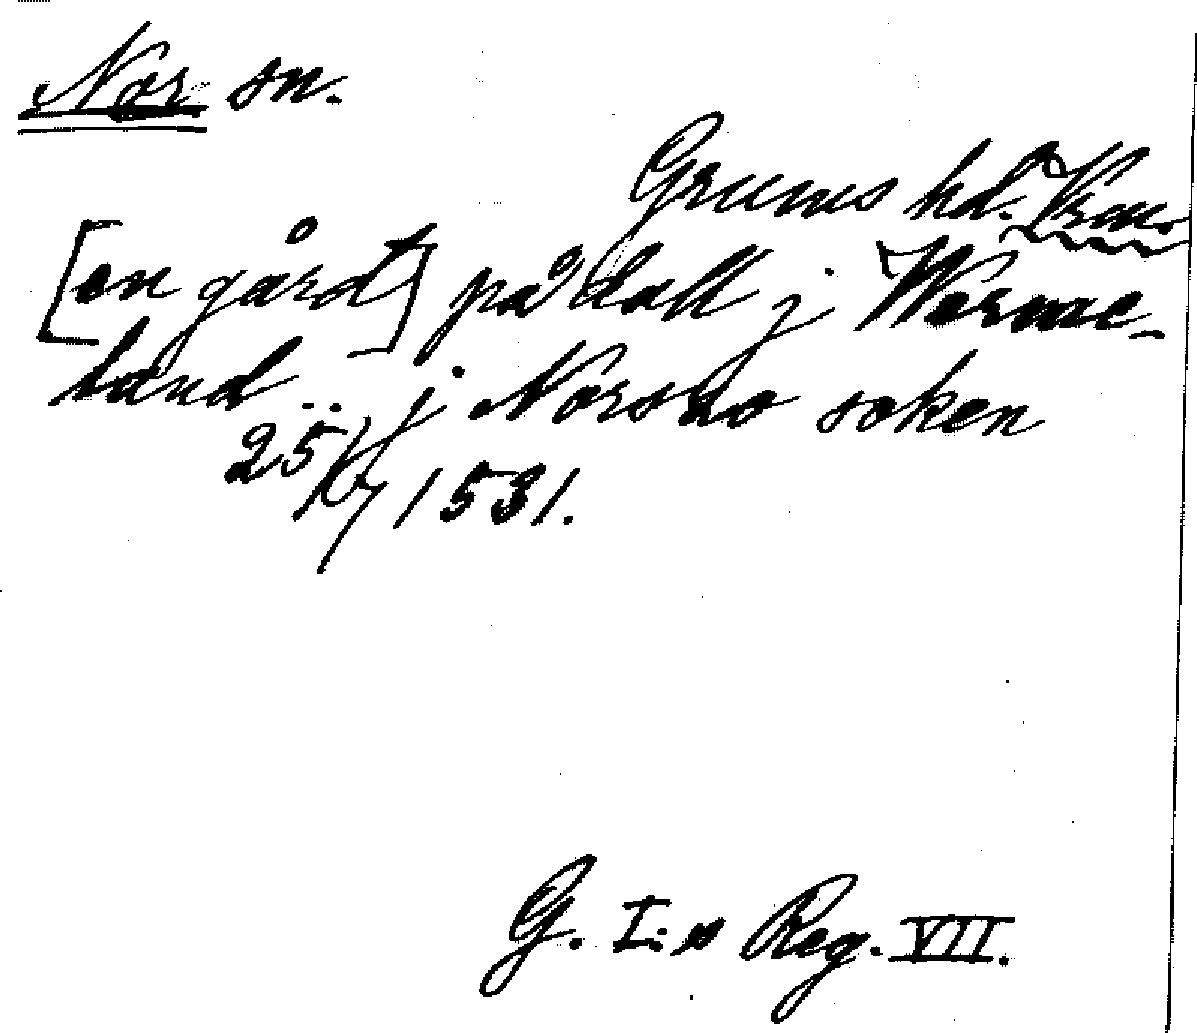 Nor sn.
Grums hd. Vrm.
[en gård] på dall j Werme-
land .. j Norsko soken
25/7 1531.
G. I:s Reg. VII.